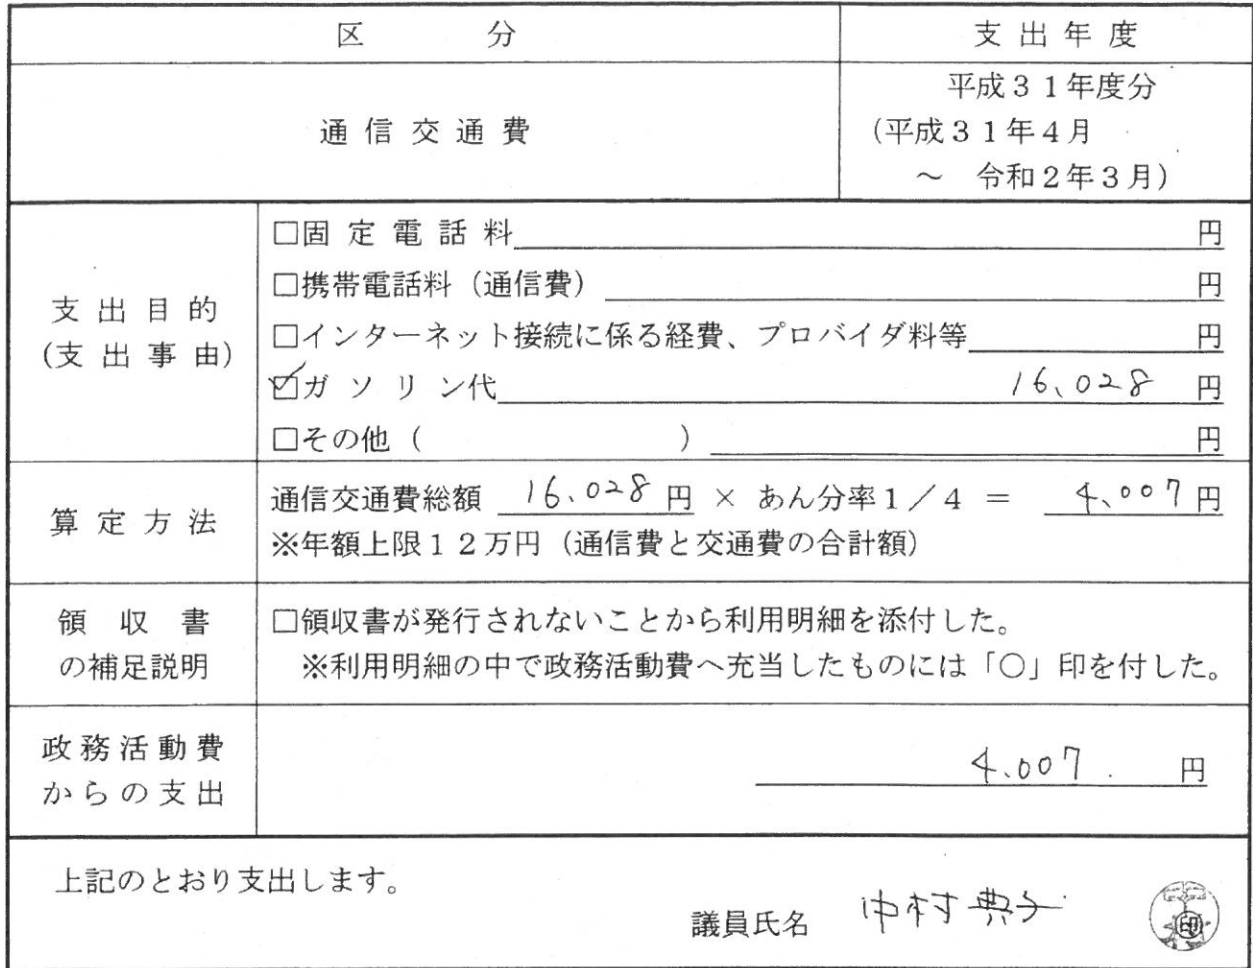 区　　　分
支 出 年 度
通 信 交 通 費
平成３１年度分
（平成３１年４月
～　令和２年３月）
支 出 目 的
（支 出 事 由）
□固 定 電 話 料　　　円
□携帯電話料（通信費）　　　円
□インターネット接続に係る経費、プロバイダ料等　　　円
☑ガ ソ リ ン代　16,028　円
□その他（　　　　　　）　　　円
算 定 方 法
通信交通費総額　16,028 円 × あん分率１／４ ＝　4,007円
※年額上限１２万円（通信費と交通費の合計額）
領　収　書
の補足説明
□領収書が発行されないことから利用明細を添付した。
※利用明細の中で政務活動費へ充当したものには「○」印を付した。
政務活動費
からの支出
4,007　円
上記のとおり支出します。
議員氏名　中村典子　印